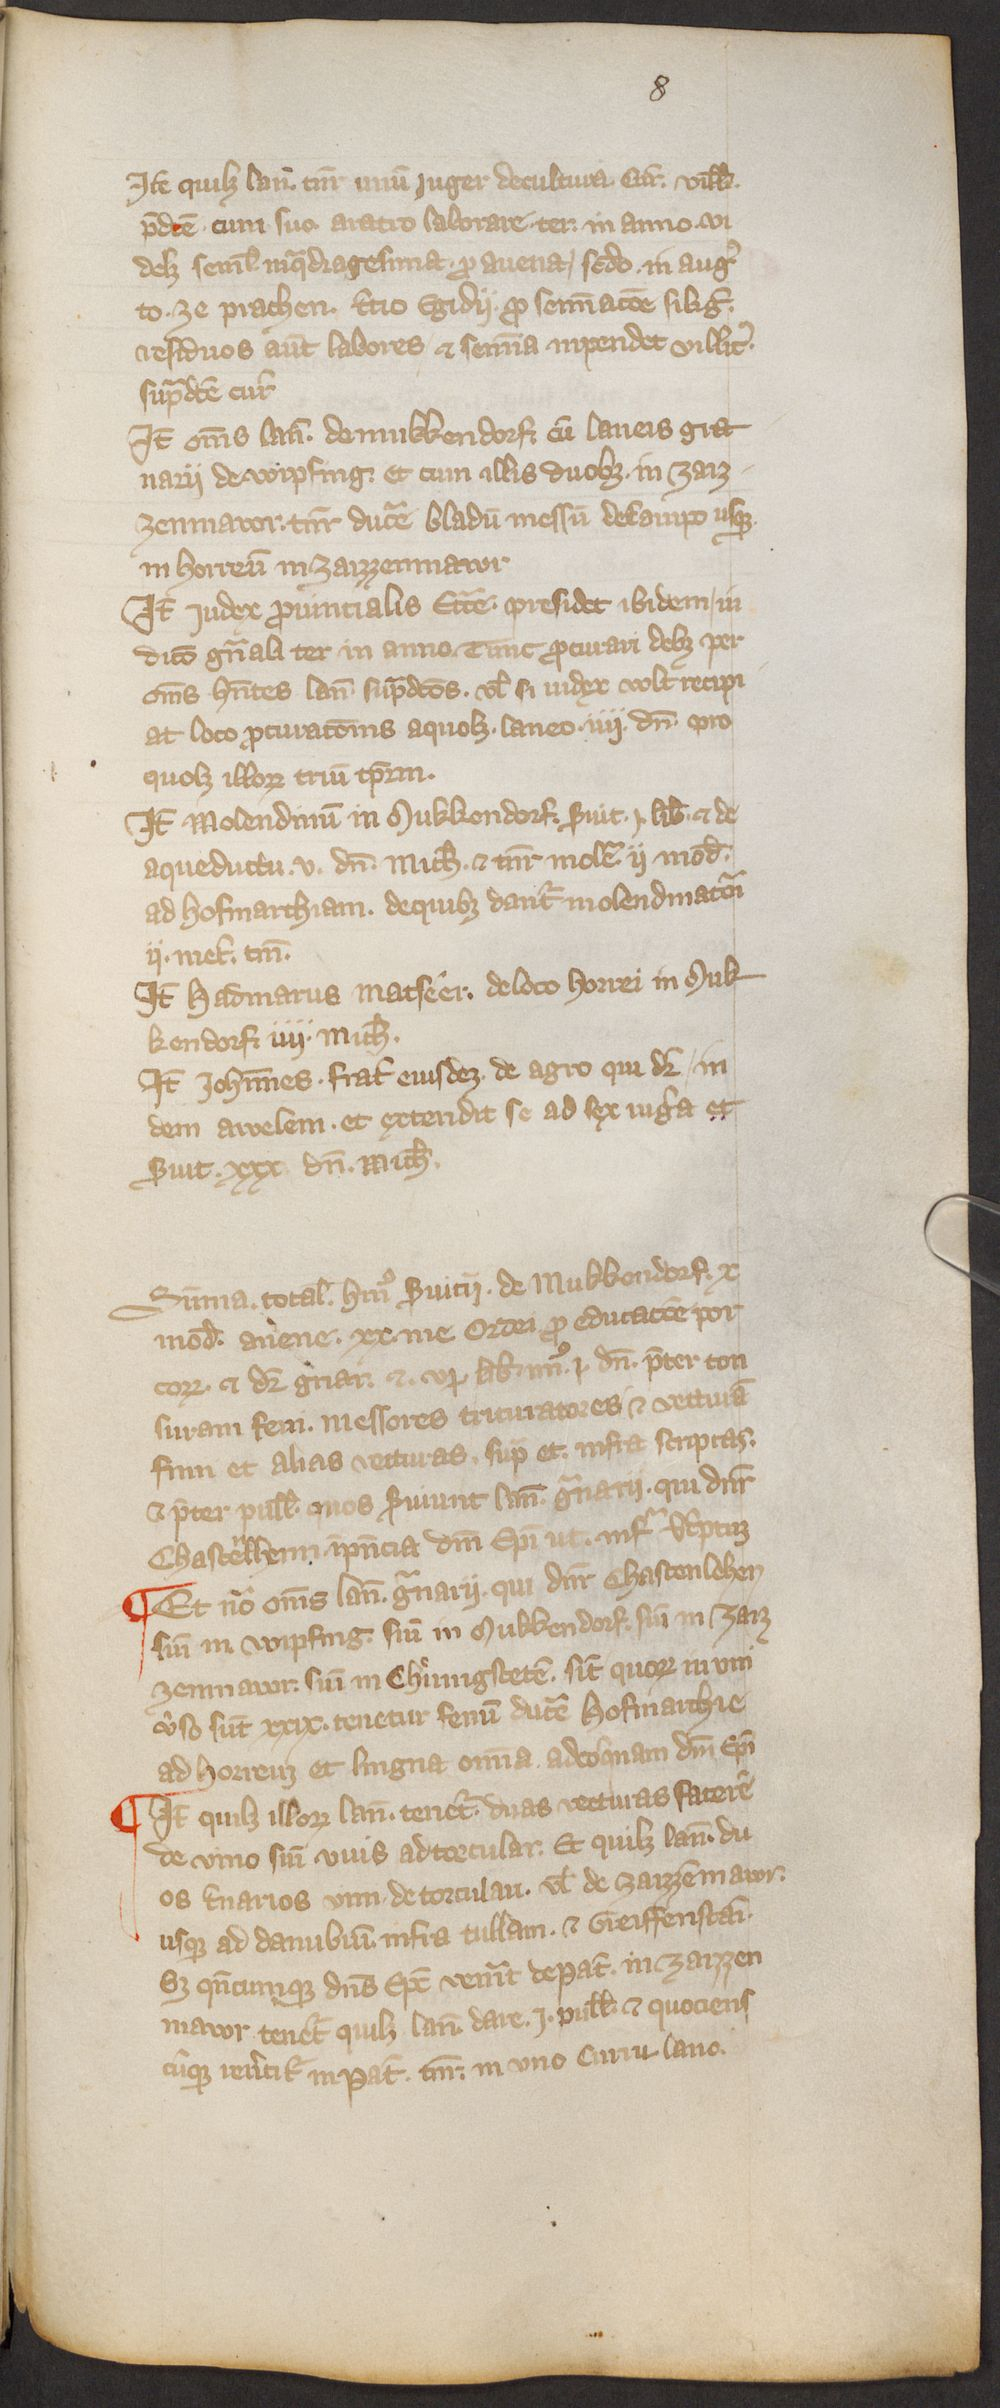 8
Itē quilꝫ lan̄. tn̄r unū juger de cultura Cur̄. vill̄.
p̄dcē cum suo aratro laborare ter in anno. vi
delꝫ semel in q̄dragesima. ꝓ avena / scdo. in augꝰ
to. ze prachen. t̄cio Egidij. ꝓ seminacōe siliḡ.
residuos aūt labores / ⁊ semīa inpendet villic̄.
sup̄dcē cur̄
It̄ om̄s lan̄. de mukkendorf. cū laneis gra
narij de wipfing. et cum illis duobꝫ. in zaiz
zenmawr. tn̄r ducē bladū messū de campo usqꝫ
in horreū in zaizzenmawr
It̄ judex ꝓuincialis presidet ibidem / in
ter in anno. Tunc ꝓcurari debꝫ per
om̄s hn̄tes lan̄ sup̄dcōs. vl̄ si iudex volt recipi
at loco ꝓcuracōnis a quolꝫ. laneo. iiij. dn̄. pro
quolꝫ illoꝝ triū tp̄rm.
It̄ Molendinū in Mukkendorf. s̄uit. j. lib̄. ⁊ de
aqueductu. v. dn̄. Mich̄. ⁊ tn̄r molē ij mod̄.
ad hofmarchiam. de quibꝫ dant̄ molendinatōri
ij. met̄. tm̄.
It̄ Hadmarus Matseēr. de loco horrei in Muk
kendorf. iiij. Mich̄.
It̄ Joh̄nnes. frat̄ eiusdeꝫ. de agro qui dr̄ / in
dem awelem. et extendit se ad sex iuḡa et
s̄uit. xxx dn̄. Mich̄.
Sūma. total̄. s̄uicij. de Mukkendorf. x
mod̄. auene. xx. me Ordei ꝓ educacōe por
coꝝ. ⁊ dr̄ gnar̄. ⁊. vj. lib̄. j. dn̄. p̄ter ton
suram feni. Messores trituratores ⁊ vecturā
fimi et alias vecturas. sup̄ et. infra scriptas.
⁊ p̄ter pull̄. quos s̄uiunt lan̄. g̃narij. qui dn̄r
dn̄i Ep̄i ut. inf̃
Et om̄s lan̄. g̃narij. qui dn̄r Chastenlehen
siū in wipfing. siū in Mukkendorf. siū in zaiz
zenmawr. siū in Chūnigstetē. sīt quoꝝ in vni
v̄so sūt xxix. tenetur fenū ducē hofmarchie
ad horreuꝫ et lingna om̄ia ad coq̄nam dn̄i Ep̄i
It̄ quilꝫ illoꝝ lan̄. tenet̄. duas vecturas facere
de vino siū vuis ad torcular. Et quilꝫ lan̄. du
os t̄narios vini de torculari. vl̄ de zaizzēmawr.
usqꝫ ad danubiū infra tullam. ⁊ Greiffenstai.
sꝫ qn̄cumqꝫ dn̄s Ep̄c venit̄ de pat̄. in zaizzen
mawr tenet̄ quilꝫ lan̄. dare. j. pull̄. ⁊ quociens
cūqꝫ in pat̄. tn̄r. in vno Curru lano.